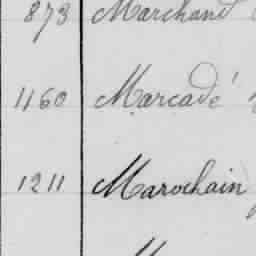 873 Marchand
1160 Marcadé
1211 Marochain